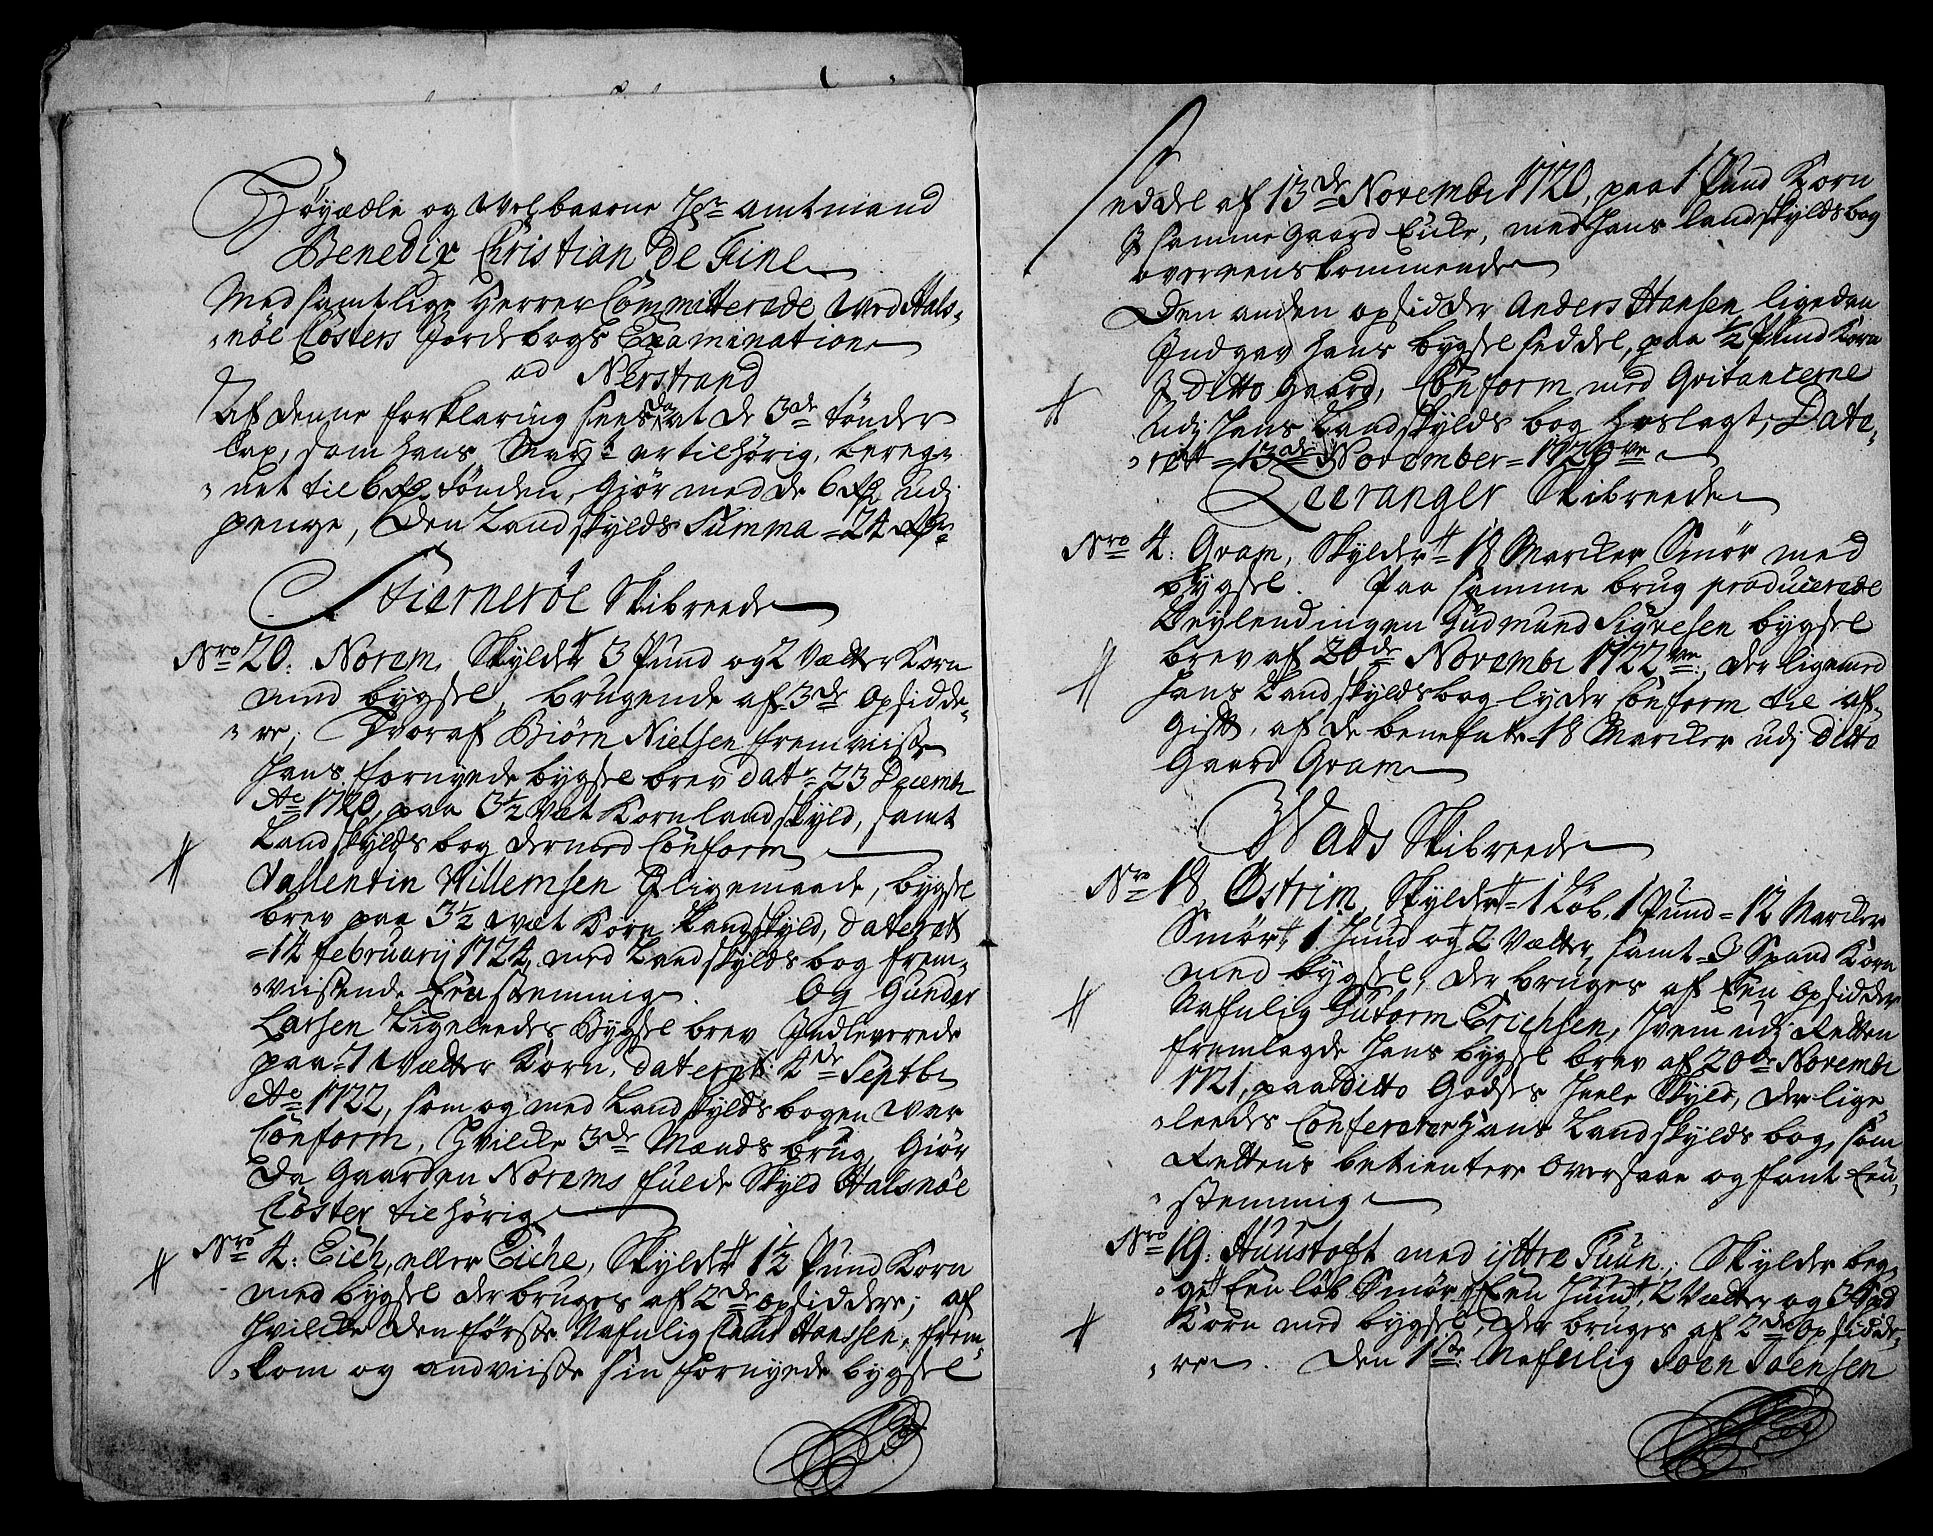 Höyædle og Velbaarne Hr amtmand
Benedix Christian De Fine
Med samtlige Herrer Committerede Ved Hals-
nöe Closters Jordebogs Examination
ad Nerstrand
Af denne forklaring sees da at de 3de tönder
lax, som hans May:t er tilhörig, bereg-
net til 6 tönden, Giör med de 6 udj
penge, den Landskylds Summa = 24
Stiernerøe Skibreede
Nro 20. Norem. Skylder 3 Pund og 2 Vætter Korn
med bygsel, brugende af 3de Opsidde-
re, Hvoraf Biørn Nielsen fremviiste
hans fornyede bygsel brev dat: 23 Decembr
Ao 1720, paa 3½ Væt Korn landskyld, samt
Landskylds bog dermed Conform
Vallentin Willemsen J ligemaade, bygsel
brev paa 3½ Væt Korn Landskyld, daterit
= 14 februarij 1724, med Landskylds bog frem-
viisende Eenstemmig. Og Gunder
Larsen Ligeleedes Bygsel brev Indleverede
paa 7 Vætter Korn, daterit 4de Septbr
Ao 1722, som og med Landskylds bogen var
Conform, Hvilcke 3de Mænds brug, Giör
Da Gaarden Norems fulde Skyld Halsnöe
Closter tilhörig
Nro 4. Eich, eller Eiche, Skylder 1½ Pund Korn
med bygsel der bruges af 2de opsiddere; af
Hvilcke den förste Nafnlig Hanssen, frem-
kom og andviiste sin fornyede bygsel
seddel af 13de Novembr 1720, paa 1 Pund Korn
J samme gaard Eicke, med hans landskylds bog
overeenskommende
Den anden opsidder Anders Hansen ligedan
Indgav hans bygsel seddel, paa ½ Pund Korn
J ditto gaard, Conform med Qvitancerne
udj hans Landskylds bog hoslagt, Date-
rit = 13de November = 1720
Leeranger Skibreede
Nro 4. Gram, Skylder 18 Marcker Smör med
bygsel. Paa samme brug producerede
Leylendingen Gudmund Sigvesen bygsel
brev af 20de Novembr 1722, der ligemed
hans Landskylds bog lyder Conform til af-
gift, af de benefnte 18 Marcker udj ditto
Gaard Gram
Wads Skibreede
Nro 18 Østrim, Skylder 1 Löb, 1 Pund = 12 Marcker
Smör, 1 Hund og 2 Vætter, samt Spand Korn
med bygsel, der bruges af Een Opsidder
Nafnlig Gutorm Erichsen, hvem udj Retten
fremlagde hans bygsel brev af 20de Novembr
1721, paa ditto Godses heele Skyld, der lige
leedes Confererer hans Landskylds bog, som
Rettens betientere Oversaae og fant Een-
stemmig
Nro 19. Huustoft med ÿttre Tuun; Skylder beg-
ge Een löb Smör, Een Hund, 2 Vætter og 3 Spd
Korn med bygsel, der bruges af 2de Opsidde-
re. Den 1ste Nafnlig Soen Soensen